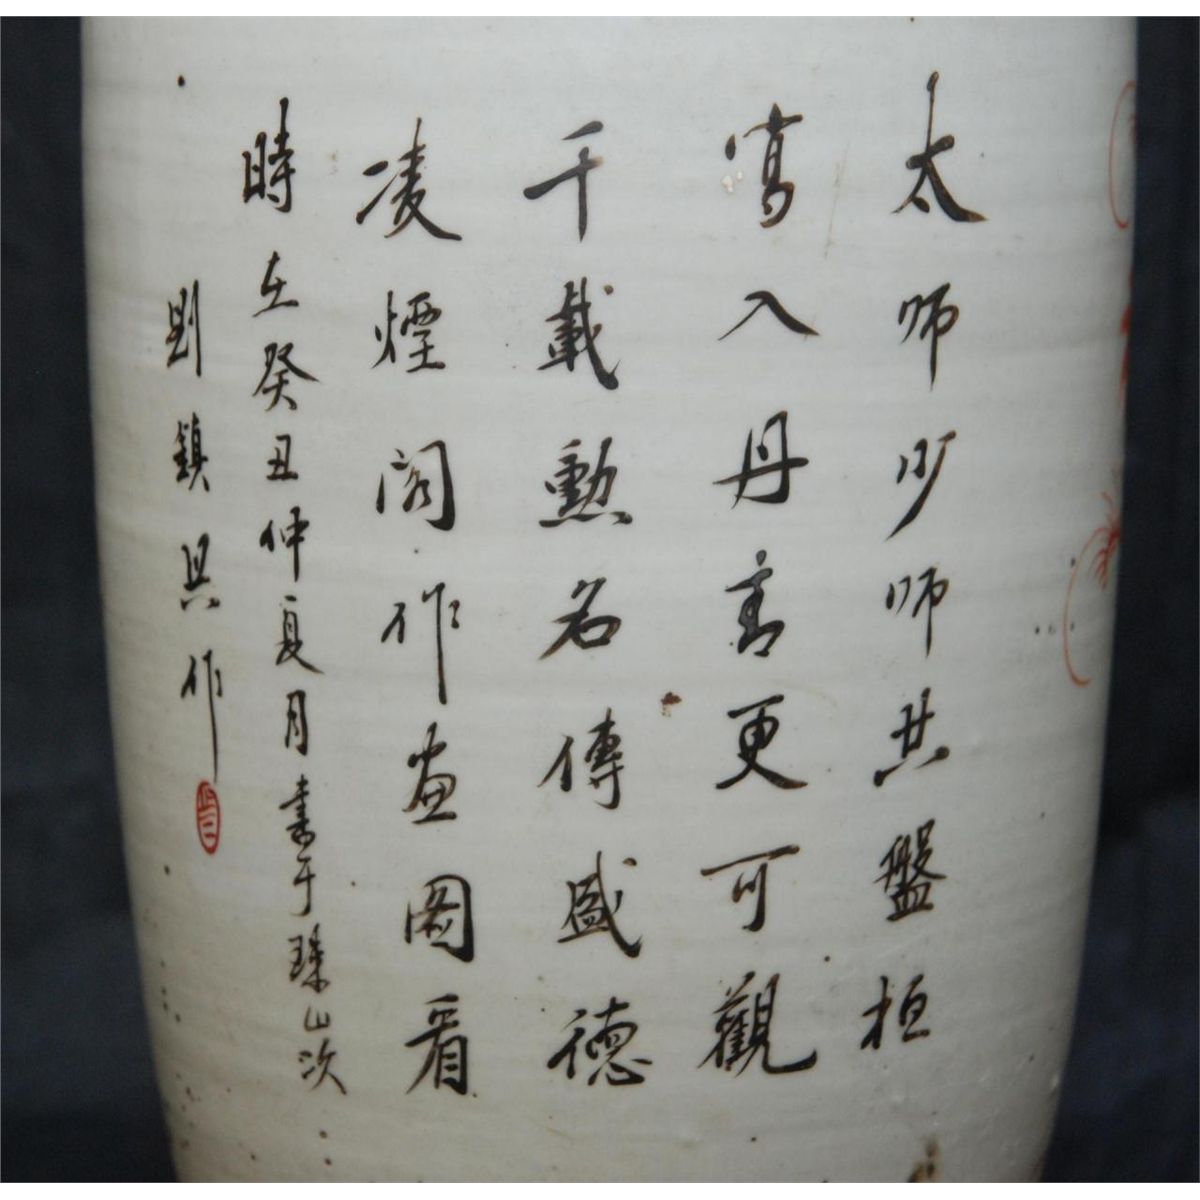 太师少师共盤桓
寫入丹青更可觀
千載勲名傳盛德
凌煙阁作畫圖看
時在癸丑仲夏月書于珠山次
劉鎮興作